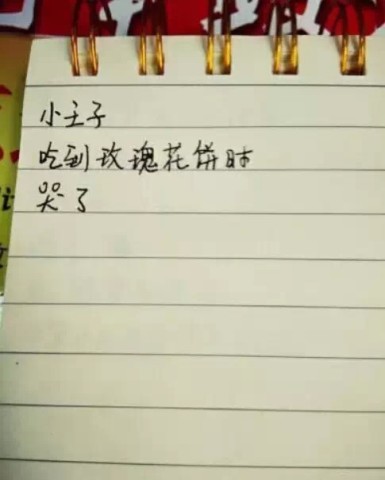 小王子
吃到玫瑰花饼时
哭了